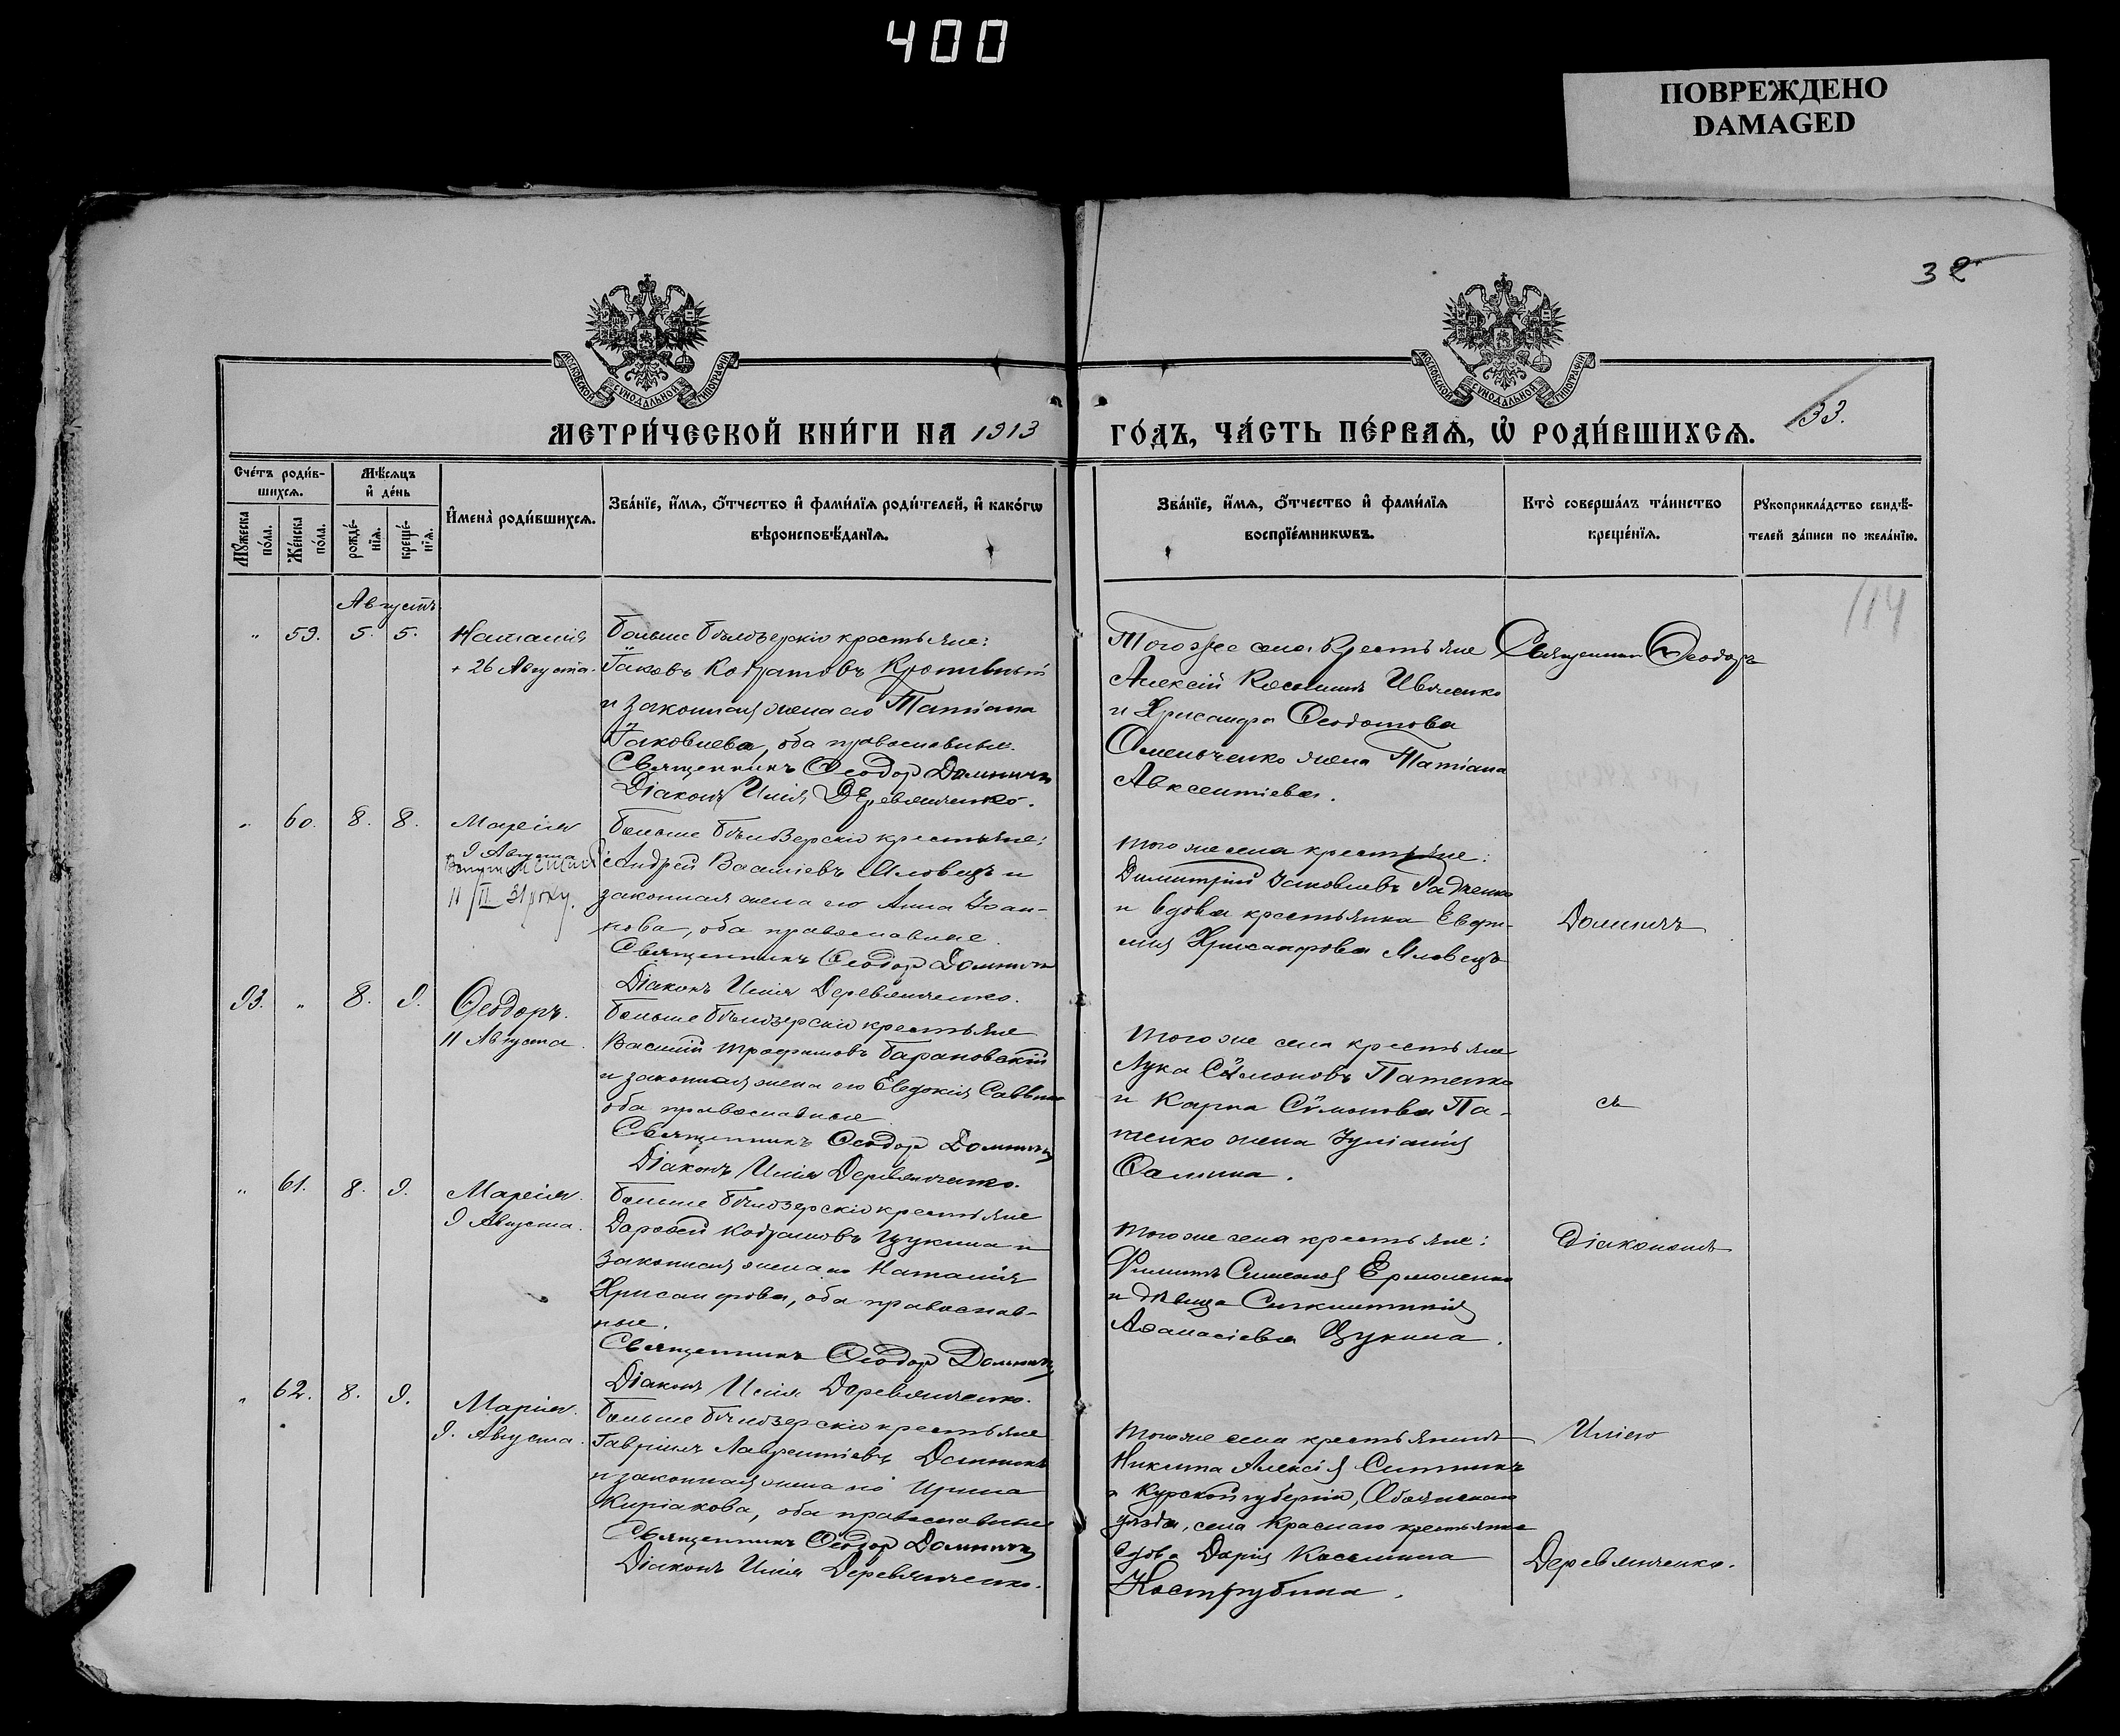 400
ПОВРЕЖДЕНО
DAMAGED
32
МОСКОВСКОЙ СѴНОДАЛЬНОЙ ТИПОГРАФІИ
МОСКОВСКОЙ СѴНОДАЛЬНОЙ ТИПОГРАФІИ
МЕТРИ́ЧЕСКОЙ КНИ́ГИ НА 1913
ГО́ДЪ, ЧА́СТЬ ПЕ́РВАѦ, Ѡ РОДИ́ВШИХСѦ.
33.
Сче́тъ роди́в-
шихсѧ.
Мѣ́сѧцъ
и҆ де́нь
Мꙋ́жеска
по́ла.
Же́нска
по́ла.
рожде́-
нїѧ.
креще́-
нїѧ.
И҆мена̀ роди́вшихсѧ.
Зва́нїе, и҆́мѧ, ѻ҆́тчество и҆ фами́лїѧ роди́телей, и҆ како́гѡ
вѣроисповѣ́данїѧ.
Зва́нїе, и҆́мѧ, ѻ҆́тчество и҆ фами́лїѧ
воспрїе́мникѡвъ.
Кто̀ соверша́лъ та́инство
креще́нїѧ.
Рꙋкоприкла́дство свидѣ́-
телей за́писи по жела́нїю.
114
Августъ
" 59. 5. 5.
Наталія
+ 26 Августа.
Больше Бѣлозерскіе крестьяне:
Іаковъ Кодратовъ Кропивный
и законная жена его Татіана
Іаковлева, оба православные.
Священникъ Ѳеодоръ Домничъ
Діаконъ Илія Деревянченко.
Того же села крестьяне
Алексій Косминъ Ивченко
и Хрисанфа Ѳеодотова
Омельченко жена Татіана
Авксентіева.
Священникъ Ѳеодоръ
" 60. 8. 8.
Марѳія
9 Августа
11/II 31 року.
Больше Бѣлозерскіе крестьяне:
Андрей Василіевъ Яловецъ и
законная жена его Анна Іоан-
нова, оба православные.
Священникъ Ѳеодоръ Домничъ
Діаконъ Илія Деревянченко.
Того же села крестьяне:
Димитрій Іаковлевъ Радченко
и вдова крестьянка Евфи-
мія Хрисанфова Яловецъ
Домничъ
93. " 8. 9.
Ѳеодоръ.
11 Августа.
Больше Бѣлозерскіе крестьяне
Василій Трофимовъ Барановскій
и законная жена его Евдокія Саввина
оба православные
Священникъ Ѳеодоръ Домничъ
Діаконъ Илія Деревянченко.
Того же села крестьяне
Лука Сѵмоновъ Патенко
и Карпа Сѵмонова Па-
тенко жена Іуліанія
Ѳомина.
съ
" 61. 8. 9.
Марѳія.
9 Августа.
Больше Бѣлозерскіе крестьяне
Дороѳей Кодратовъ Цукина и
законная жена его Наталія
Хрисанфова, оба православ-
ные.
Священникъ Ѳеодоръ Домничъ
Діаконъ Илія Деревянченко.
Того же села крестьяне:
Филиппъ Ермоленко
и дѣвица Синклитикія
Аѳанасіева Цукина.
Діакономъ
" 62. 8. 9.
Марія.
9. Августа.
Больше Бѣлозерскіе крестьяне
Гавріилъ Лаврентіевъ
и законная жена его Ирина
Киріакова, оба православные
Священникъ Ѳеодоръ Домничъ
Діаконъ Илія Деревянченко.
Того же села крестьянинъ
Никита Алексіевъ Ситникъ
и Курской губерніи, Обоянскаго
уѣзда, села Краснаго крестьянка
вдова Дарія Космина
Кострубина.
Иліею
Деревянченко.